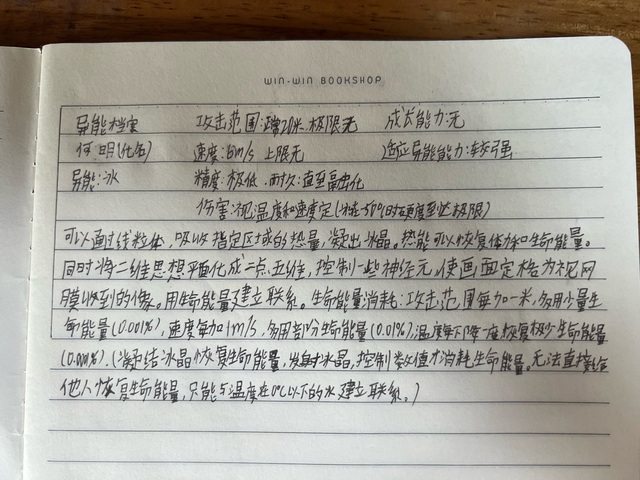 WIN-WIN BOOKSHOP
异能档案 攻击范围:通常20米.极限无 成长能力:无
何.明(化名) 速度:6m/s 上限无 适应异能能力:较强
异能:冰 精度:极低.耐久:直至融化
伤害:视温度和速度定(冰在-50℃时硬度至达极限)
可以通过线粒体,吸收指定区域的热量,凝出冰晶。热能可以恢复体力和生命能量。
同时将二维思想平面化成二点五维,控制一些神经元,使画面定格为视网
膜收到的像。用生命能量建立联系。生命能量消耗:攻击范围每加一米,多用少量生
命能量(0.001%),速度每加1m/s,多用部分生命能量(0.01%),温度每下降一度恢复极少生命能量
(0.0001%).(凝结冰晶恢复生命能量,发射冰晶,控制数值才消耗生命能量。无法直接给
他人恢复生命能量,只能与温度在0℃以下的水建立联系。)